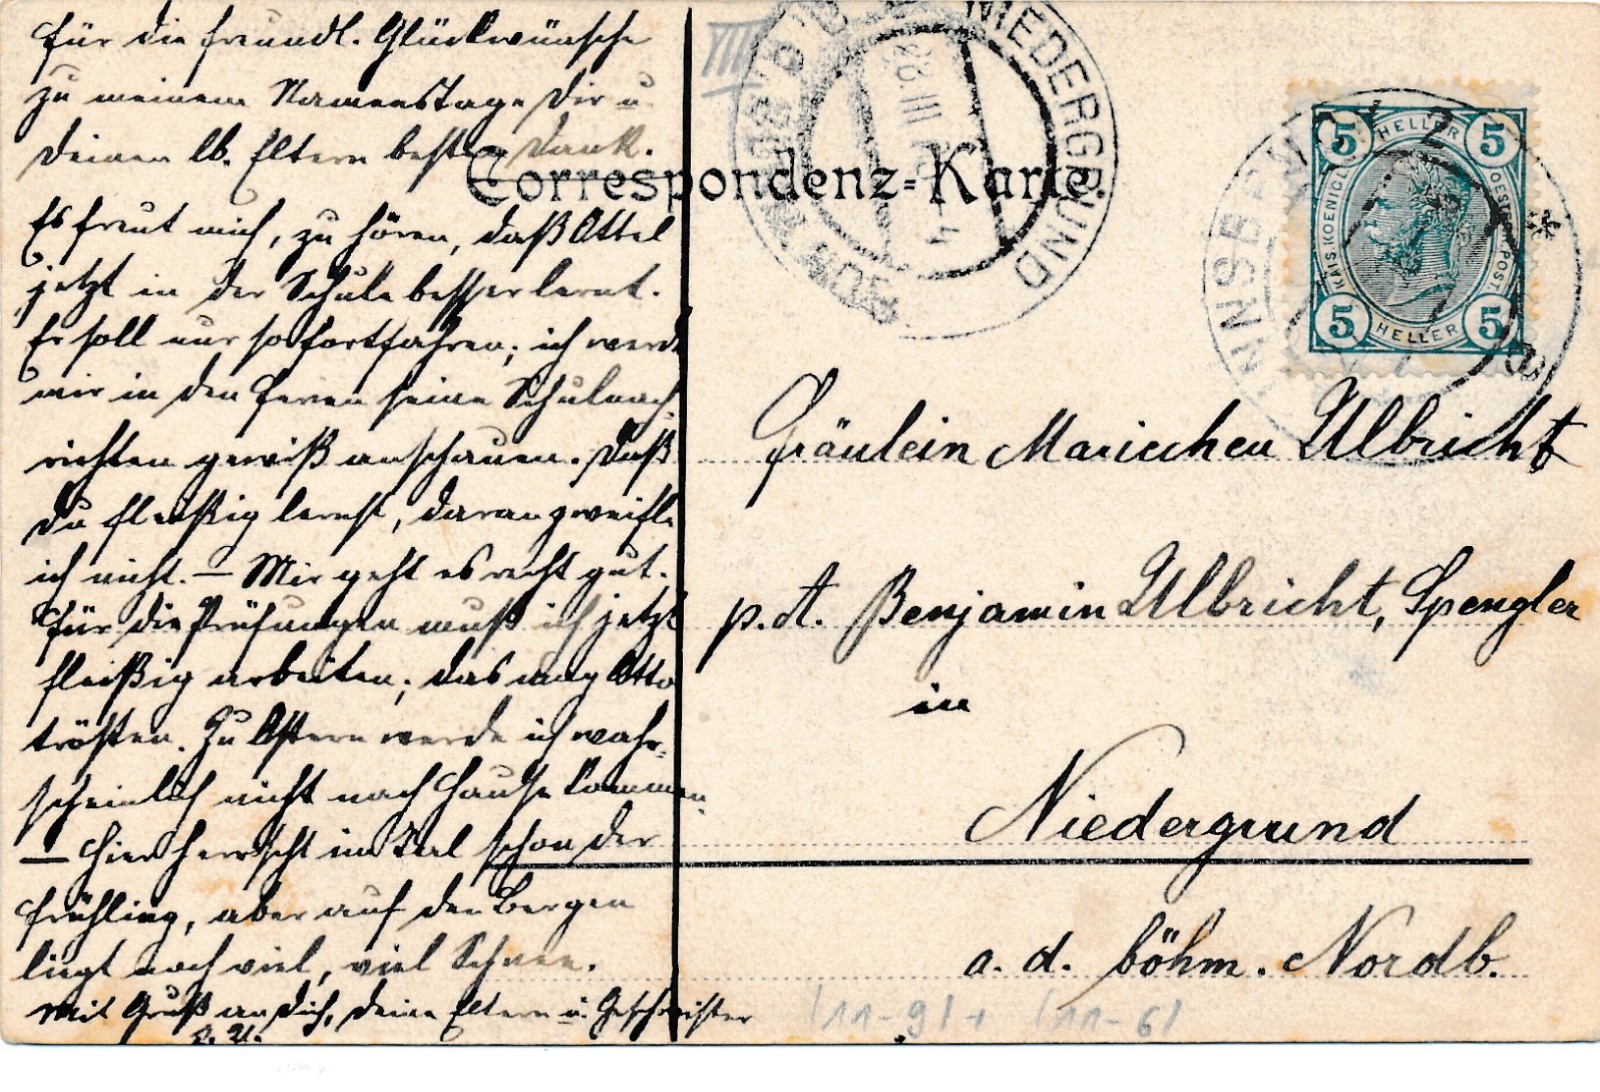 Für die freundl. Glückwünsche
zu meinem Namenstage Dir u.
Deinen lb. Eltern besten Dank.
Es freut mich, zu hören, daß Ottel
jetzt in der Schule besser lernt.
Er soll nur so fortfahren; ich werde
mir in den Ferien seine Schulnach-
richten gewiß anschauen. Daß
Du fleißig lernst, daran zweifle
ich nicht. – Mir geht es recht gut.
Für die Prüfungen muß ich jetzt
fleißig arbeiten; das mag Otto
trösten. Zu Ostern werde ich wahr-
scheinlich nicht nach Hause kommen.
– Hier herrscht im Tal schon der
Frühling, aber auf den Bergen
liegt noch viel, viel Schnee.
Mit Gruß an Dich, Deine Eltern u. Geschwister
Correspondenz-Karte.
VIII
NIEDERGRUND
28 III
INNSBRUCK 2
5 HELLER 5
KAIS KOENIGL OESTR POST
5 HELLER 5
Fräulein Mariechen Ulbricht
p. A. Benjamin Ulbricht, Spengler
in
Niedergrund
a. d. böhm. Nordb.
/11-9/+ /11-6/